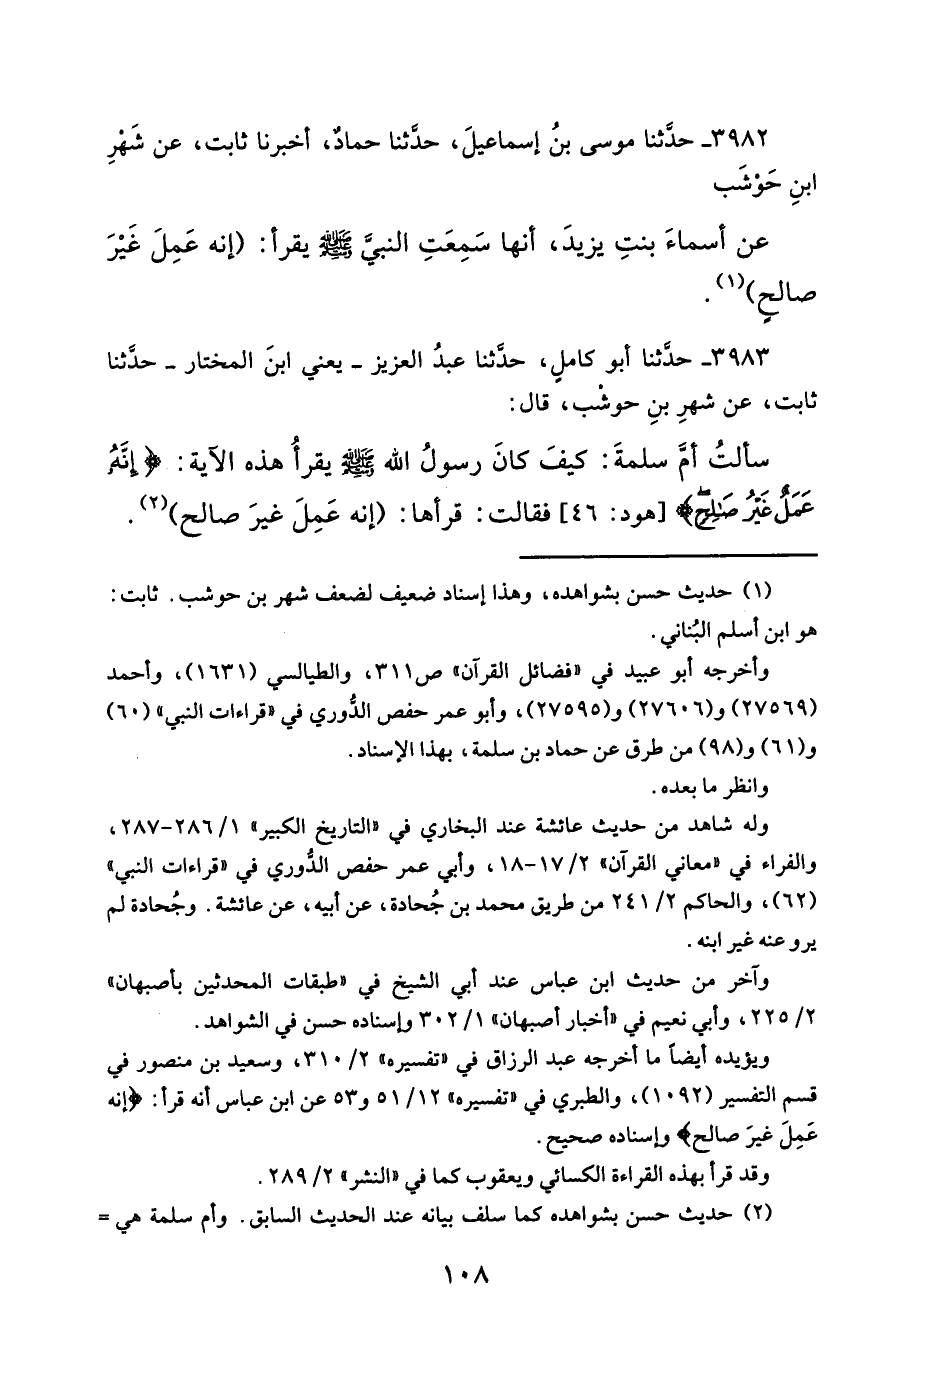 ٣٩٨٢ـ حدَّثنا موسى بنُ إسماعيلَ، حدَّثنا حمادٌ، أخبرنا ثابت، عن شَهْرِ
ابنِ حَوْشَب
عن أسماءَ بنتِ يزيدَ، أنها سَمِعَتِ النبيَّ ﷺ يقرأ: (إنه عَمِلَ غَيْرَ
صالحٍ)(١).
٣٩٨٣ـ حدَّثنا أبو كاملٍ، حدَّثنا عبدُ العزيز ـ يعني ابنَ المختار ـ حدَّثنا
ثابت، عن شهرِ بنِ حوشْب، قال:
سألتُ أمَّ سلمةَ: كيفَ كانَ رسولُ الله ﷺ يقرأُ هذه الآية: ﴿إِنَّهُ
عَمَلٌ غَيْرُ صَالِحٍ﴾ [هود: ٤٦] فقالت: قرأها: (إنه عَمِلَ غيرَ صالح)(٢).
(١) حديث حسن بشواهده، وهذا إسناد ضعيف لضعف شهر بن حوشب. ثابت:
هو ابن أسلم البُناني.
وأخرجه أبو عبيد في «فضائل القرآن» ص٣١١، والطيالسي (١٦٣١)، وأحمد
(٢٧٥٦٩) و(٢٧٦٠٦) و(٢٧٥٩٥)، وأبو عمر حفص الدُّوري في «قراءات النبي» (٦٠)
و(٦١) و(٩٨) من طرق عن حماد بن سلمة، بهذا الإسناد.
وانظر ما بعده.
وله شاهد من حديث عائشة عند البخاري في «التاريخ الكبير» ١/ ٢٨٦-٢٨٧،
والفراء في «معاني القرآن» ٢/ ١٧-١٨، وأبي عمر حفص الدُّوري في «قراءات النبي»
(٦٢)، والحاكم ٢/ ٢٤١ من طريق محمد بن جُحادة، عن أبيه، عن عائشة. وجُحادة لم
يرو عنه غير ابنه.
وآخر من حديث ابن عباس عند أبي الشيخ في «طبقات المحدثين بأصبهان»
٢/ ٢٢٥، وأبي نعيم في «أخبار أصبهان» ١/ ٣٠٢ وإسناده حسن في الشواهد.
ويؤيده أيضاً ما أخرجه عبد الرزاق في «تفسيره» ٢/ ٣١٠، وسعيد بن منصور في
قسم التفسير (١٠٩٢)، والطبري في «تفسيره» ١٢/ ٥١ و٥٣ عن ابن عباس أنه قرأ: ﴿إنه
عَمِلَ غيرَ صالح﴾ وإسناده صحيح.
وقد قرأ بهذه القراءة الكسائي ويعقوب كما في «النشر» ٢/ ٢٨٩.
(٢) حديث حسن بشواهده كما سلف بيانه عند الحديث السابق. وأم سلمة هي =
١٠٨